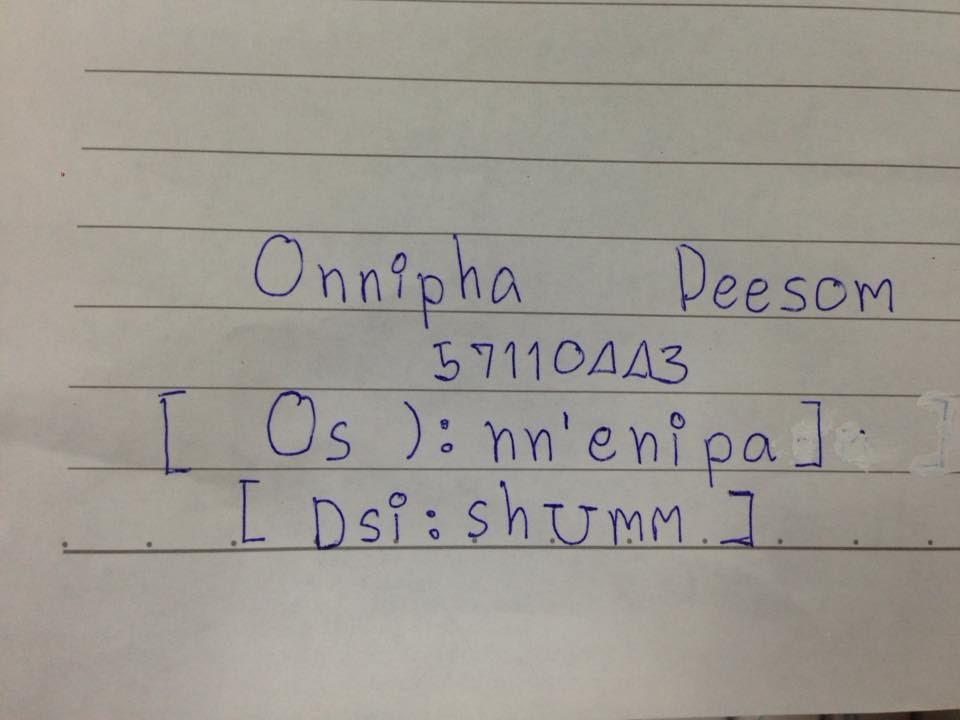 Onnipha Deesom
57110443
[ Os ): nn'enipa]
[ Dsi: shUmm ]